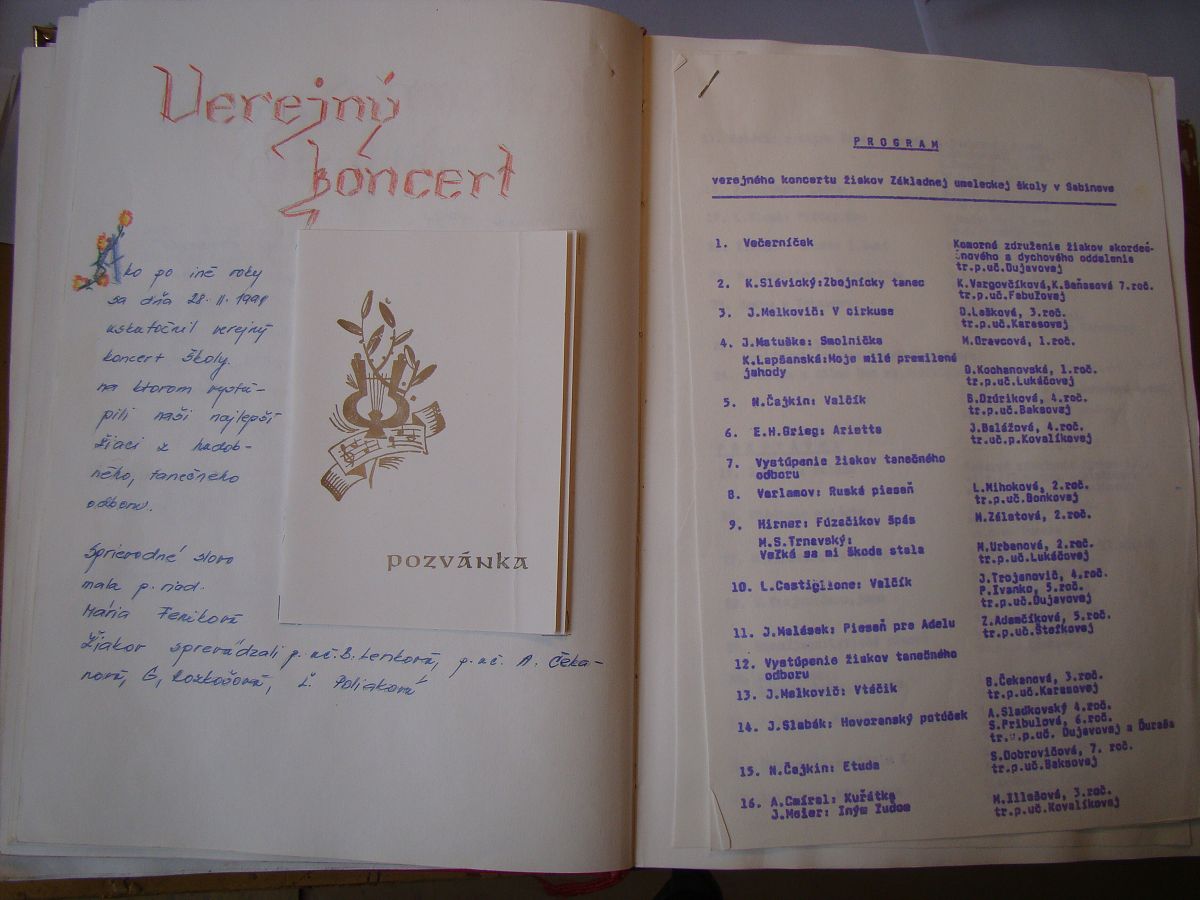 Verejný
koncert
Ako po iné roky
sa dňa 28. II.
uskutočnil verejný
koncert školy.
na ktorom vystú-
pili naši najlepší
žiaci z hudob-
ného, tanečného
odboru.
Sprievodné slovo
mala p. riad.
Mária Feniková
Žiakov sprevádzali p. uč. B. Lenková, p. uč. A. Čeka-
nová, G. Ľ. Poliaková
POZVÁNKA
PROGRAM
verejného koncertu žiakov Základnej umeleckej školy v Sabinove
1. Večerníček
Komorné združenie žiakov akordeó-
nového a dychového oddelenia
tr.p.uč.Dujavovej
2. K.Slávický:Zbojnícky tanec
K.Vargovčíková,K.Beňasová 7.roč.
tr.p.uč.Fabužovej
3. J.Melkovič: V cirkuse
D.Lešková, 3.roč.
tr.p.uč.Karasovej
4. J.Matuška: Smolnička
M.Oravcová, 1.roč.
K.Lapšanská:Moje milé premilené
jahody
D.Kochanovská, 1.roč.
tr.p.uč.Lukáčovej
5. N.Čajkin: Valčík
B.Dzúriková, 4.roč.
tr.p.uč.Baksovej
6. E.H.Grieg: Arietta
J.Balážová, 4.roč.
tr.uč.p.Kovalíkovej
7. Vystúpenie žiakov tanečného
odboru
8. Varlamov: Ruská pieseň
L.Mihoková, 2.roč.
tr.p.uč.Bonkovej
9. Hirner: Fúzačikov špás
M.Zálatová, 2.roč.
M.S.Trnavský:
Veľká sa mi škoda stala
M.Urbanová, 2.roč.
tr.p.uč.Lukáčovej
10. L.Castiglione: Valčík
J.Trojanovič, 4.roč.
P.Ivanko, 5.roč.
tr.p.uč.Dujavovej
11. J.Malásek: Pieseň pre Adelu
Z.Adamčíková, 5.roč.
tr.p.uč.Štofkovej
12. Vystúpenie žiakov tanečného
odboru
13. J.Melkovič: Vtáčik
B.Čekanová, 3.roč.
tr.p.uč.Karasovej
14. J.Slabák: Hovoranský potůček
A.Sladkovský 4.roč.
S.Pribulová, 6.roč.
tr.p.uč. Dujavovej a Ďuraša
15. N.Čajkin: Etuda
S.Dobrovičová, 7. roč.
tr.p.uč.Baksovej
16. A.Cmíral: Kuřátka
M.Illešová, 3.roč.
J.Meier: Iným ľudom
tr.p.uč.Kovalíkovej